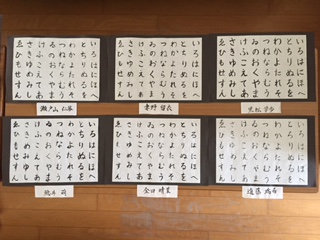 いろはにほへ
とちりぬるを
わかよたれそ
つねならむう
ゐのおくやま
けふこえてあ
さきゆめみし
ゑひもせすん
いろはにほへ
とちりぬるを
わかよたれそ
つねならむう
ゐのおくやま
けふこえてあ
さきゆめみし
ゑひもせすん
いろはにほへ
とちりぬるを
わかよたれそ
つねならむう
ゐのおくやま
けふこえてあ
さきゆめみし
ゑひもせすん
瀬戸山
いろはにほへ
とちりぬるを
わかよたれそ
つねならむう
ゐのおくやま
けふこえてあ
さきゆめみし
ゑひもせすん
遠藤
いろはにほへ
とちりぬるを
わかよたれそ
つねならむう
ゐのおくやま
けふこえてあ
さきゆめみし
ゑひもせすん
金田
いろはにほへ
とちりぬるを
わかよたれそ
つねならむう
ゐのおくやま
けふこえてあ
さきゆめみし
ゑひもせすん